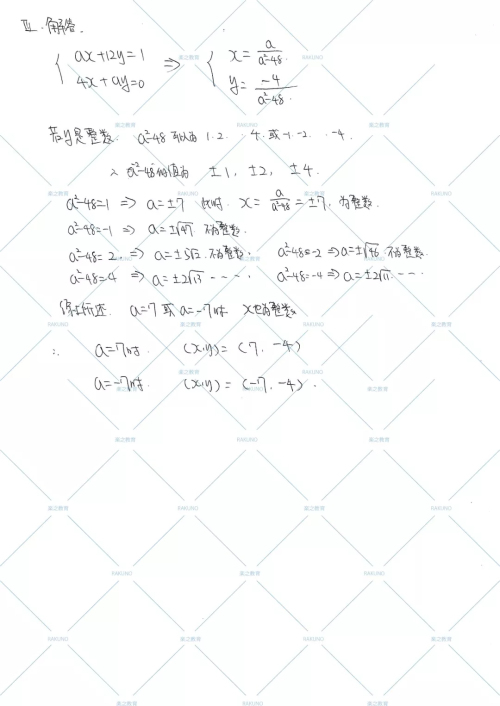 III. 解答.
{ ax+12y=1 4x+ay=0 ⇒ { x= a/(a²-48) y= -4/(a²-48).
若y是整数. a²-48 可以为 1. 2. 4. 或 -1. -2. -4.
∴ a²-48的值为 ±1, ±2, ±4.
a²-48=1 ⇒ a=±7 此时. x= a/(a²-48) = ±7, 为整数.
a²-48=-1 ⇒ a=±√47 不为整数.
a²-48= 2 ⇒ a=±5√2. 不为整数. a²-48=-2 ⇒ a=±√46 不为整数.
a²-48=4 ⇒ a=±2√13 ---- . a²-48=-4 ⇒ a=±2√11. ----
综上所述. a=7 或 a=-7时 x也为整数
∴ a=7时. (x,y) = (7, -4)
a=-7时. (x,y) = (-7, -4).
楽之教育
RAKUNO